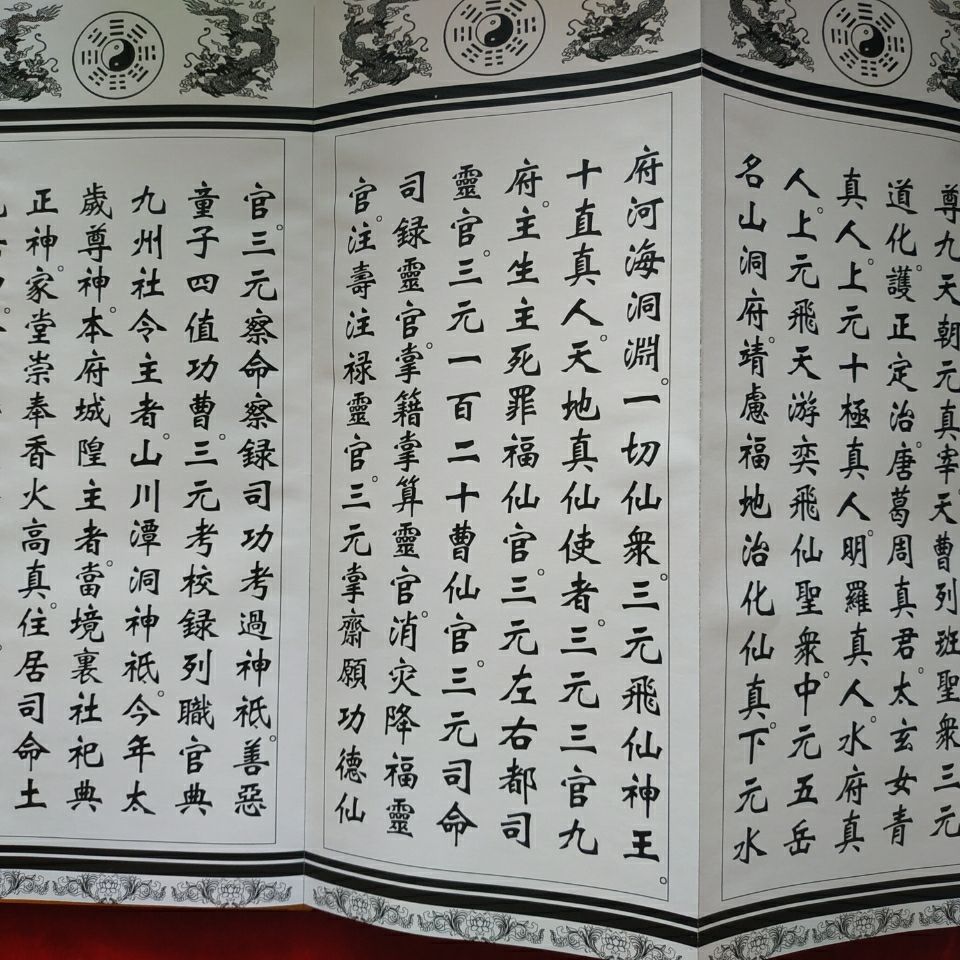 尊九天朝元真宰。天曹列班聖衆三元
道化。護正定治。唐葛周真君。太玄女青
真人。上元十極真人。明羅真人。水府真
人。上元飛天游奕飛仙聖衆。中元五岳
名山洞府。靖慮福地治化仙真。下元水
府河海洞淵。一切仙衆。三元飛仙神王。
十直真人。天地真仙使者。三元三官九
府。主生主死罪福仙官。三元左右都司
靈官。三元一百二十曹仙官。三元司命
司録靈官。掌籍掌算靈官。消灾降福靈
官。注壽注禄靈官。三元掌齋願功德仙
官。三元察命察録司功考過神祇。善惡
童子四值功曹。三元考校録列職官典
九州社令主者。山川潭洞神祇。今年太
歲尊神。本府城隍主者。當境裏社祀典
正神。家堂崇奉香火高真。住居司命土